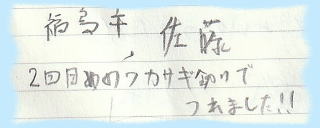 福島市、佐藤
2回目めのワカサギ釣りで
つれました!!